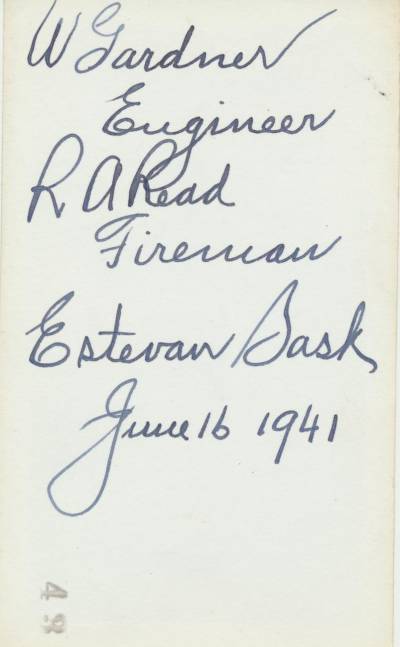 W Gardner
Engineer
R A Read
Fireman
Estevan Sask,
June 16 1941
48